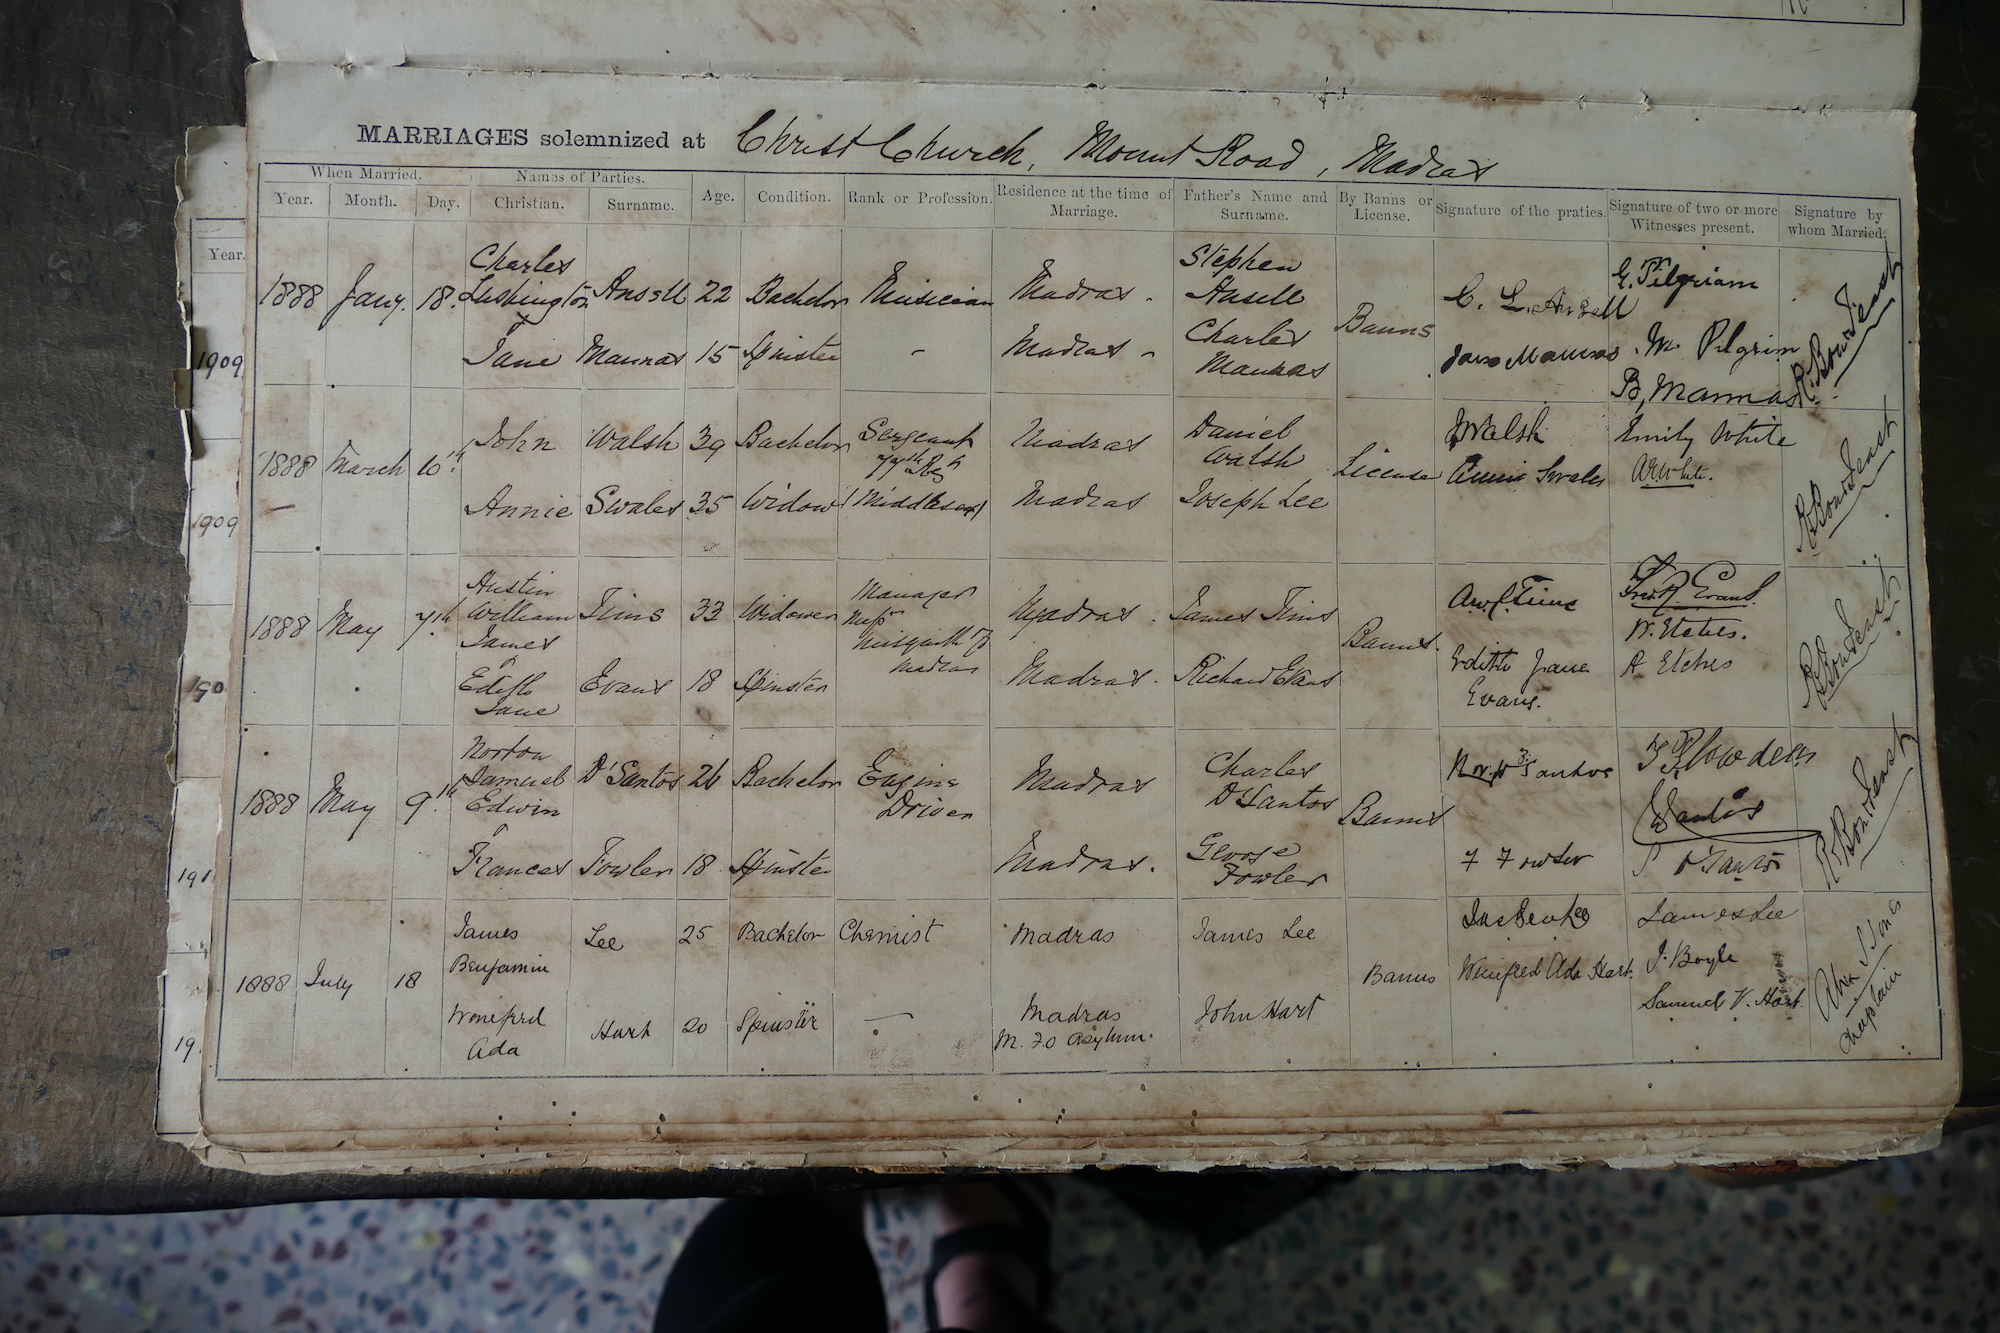 MARRIAGES solemnized at Christ Church, Mount Road, Madras
When Married. Names of Parties. Age. Condition. Rank or Profession. Residence at the time of Marriage. Father's Name and Surname. By Banns or License. Signature of the praties. Signature of two or more Witnesses present. Signature by whom Married.
Year. Month. Day. Christian. Surname.
Year.
1888 Jany. 18. Charles Lushington Ansell 22 Bachelor Musician Madras. Stephen Ansell Banns C. L. Ansell G. Pilgrim
Jane Mannas 15 Spinster - Madras - Charles Mannas Jane Mannas M. Pilgrim
B, Mannas
1909
1888 March 10th. John Walsh 39 Bachelor Sergeant Madras Daniel Walsh License J Walsh Emily White
Annie Swales 35 Widow (Middlesex) Madras Joseph Lee Annie Swales A R White.
1909
1888 May 7th. Austin William James Tims 33 Widower Manager Madras. James Tims Banns. Evans.
W. Etches.
Edith Jane Evans 18 Spinster Madras Madras. Richard Evans Edith Jane Evans. A Etches
190
1888 May 9th. Norton Samuel Edwin D'Santos 26 Bachelor Engine Driver Madras Charles D'Santos Banns T Plowden
Santos
Frances Fowler 18 Spinster Madras. George Fowler F Fowler
191
1888 July 18 James Benjamin Lee 25 Bachelor Chemist Madras James Lee Banns James Lee
J. Boyle
Winifred Ada Hart 20 Spinster — Madras M. F. O Asylum. John Hart Winifred Ada Hart. Samuel V. Hart
Chaplain
19